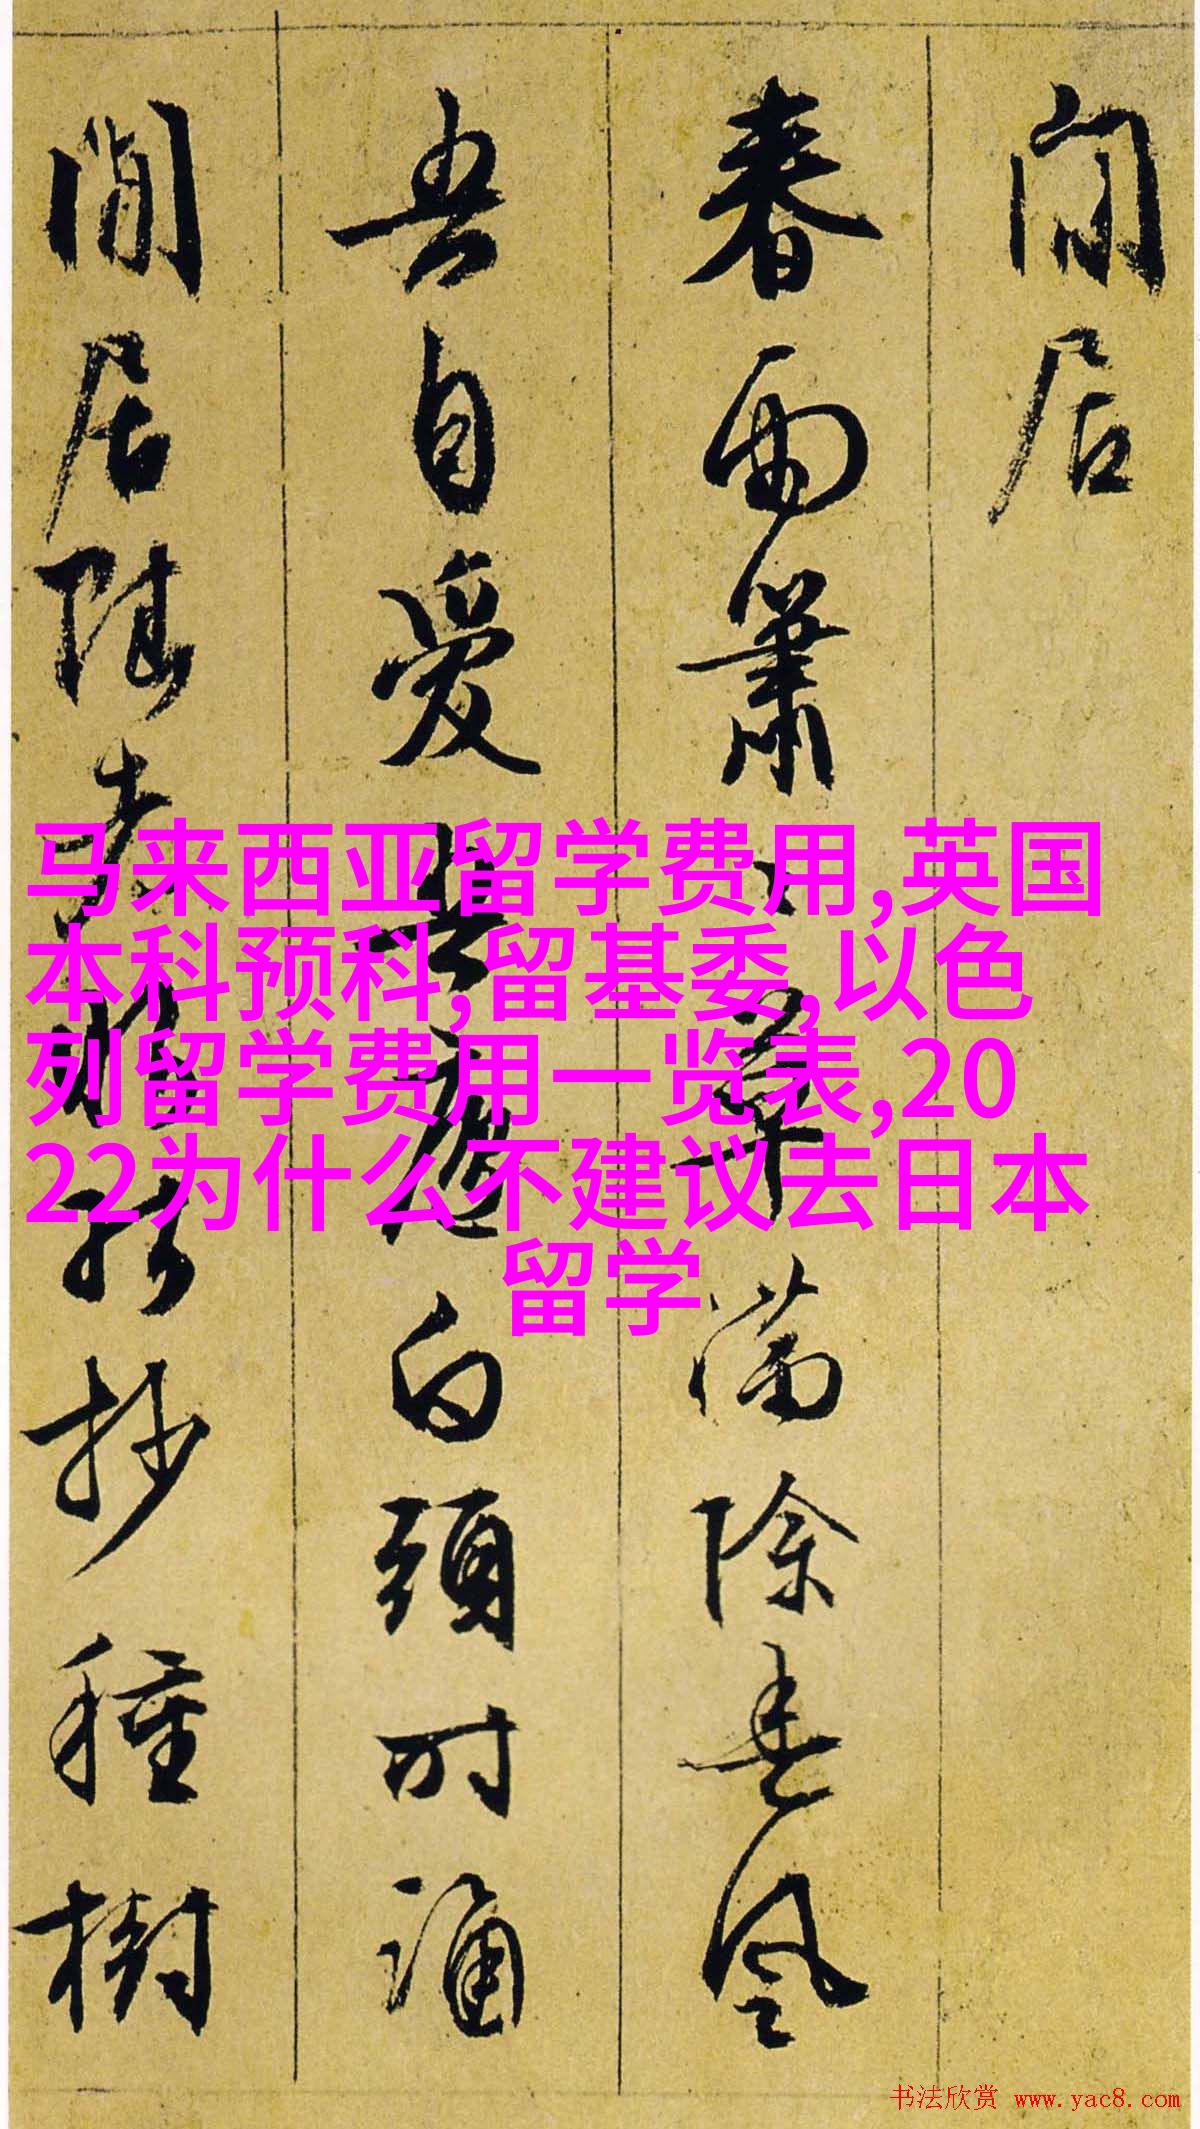 闲居
春雨萧〻草满除春风
吾自爱 白頭时诵
閒居 抄種樹
马来西亚留学费用,英国
本科预科,留基委,以色
列留学费用一览表,20
22为什么不建议去日本
留学
书法欣赏 www.yac8.com